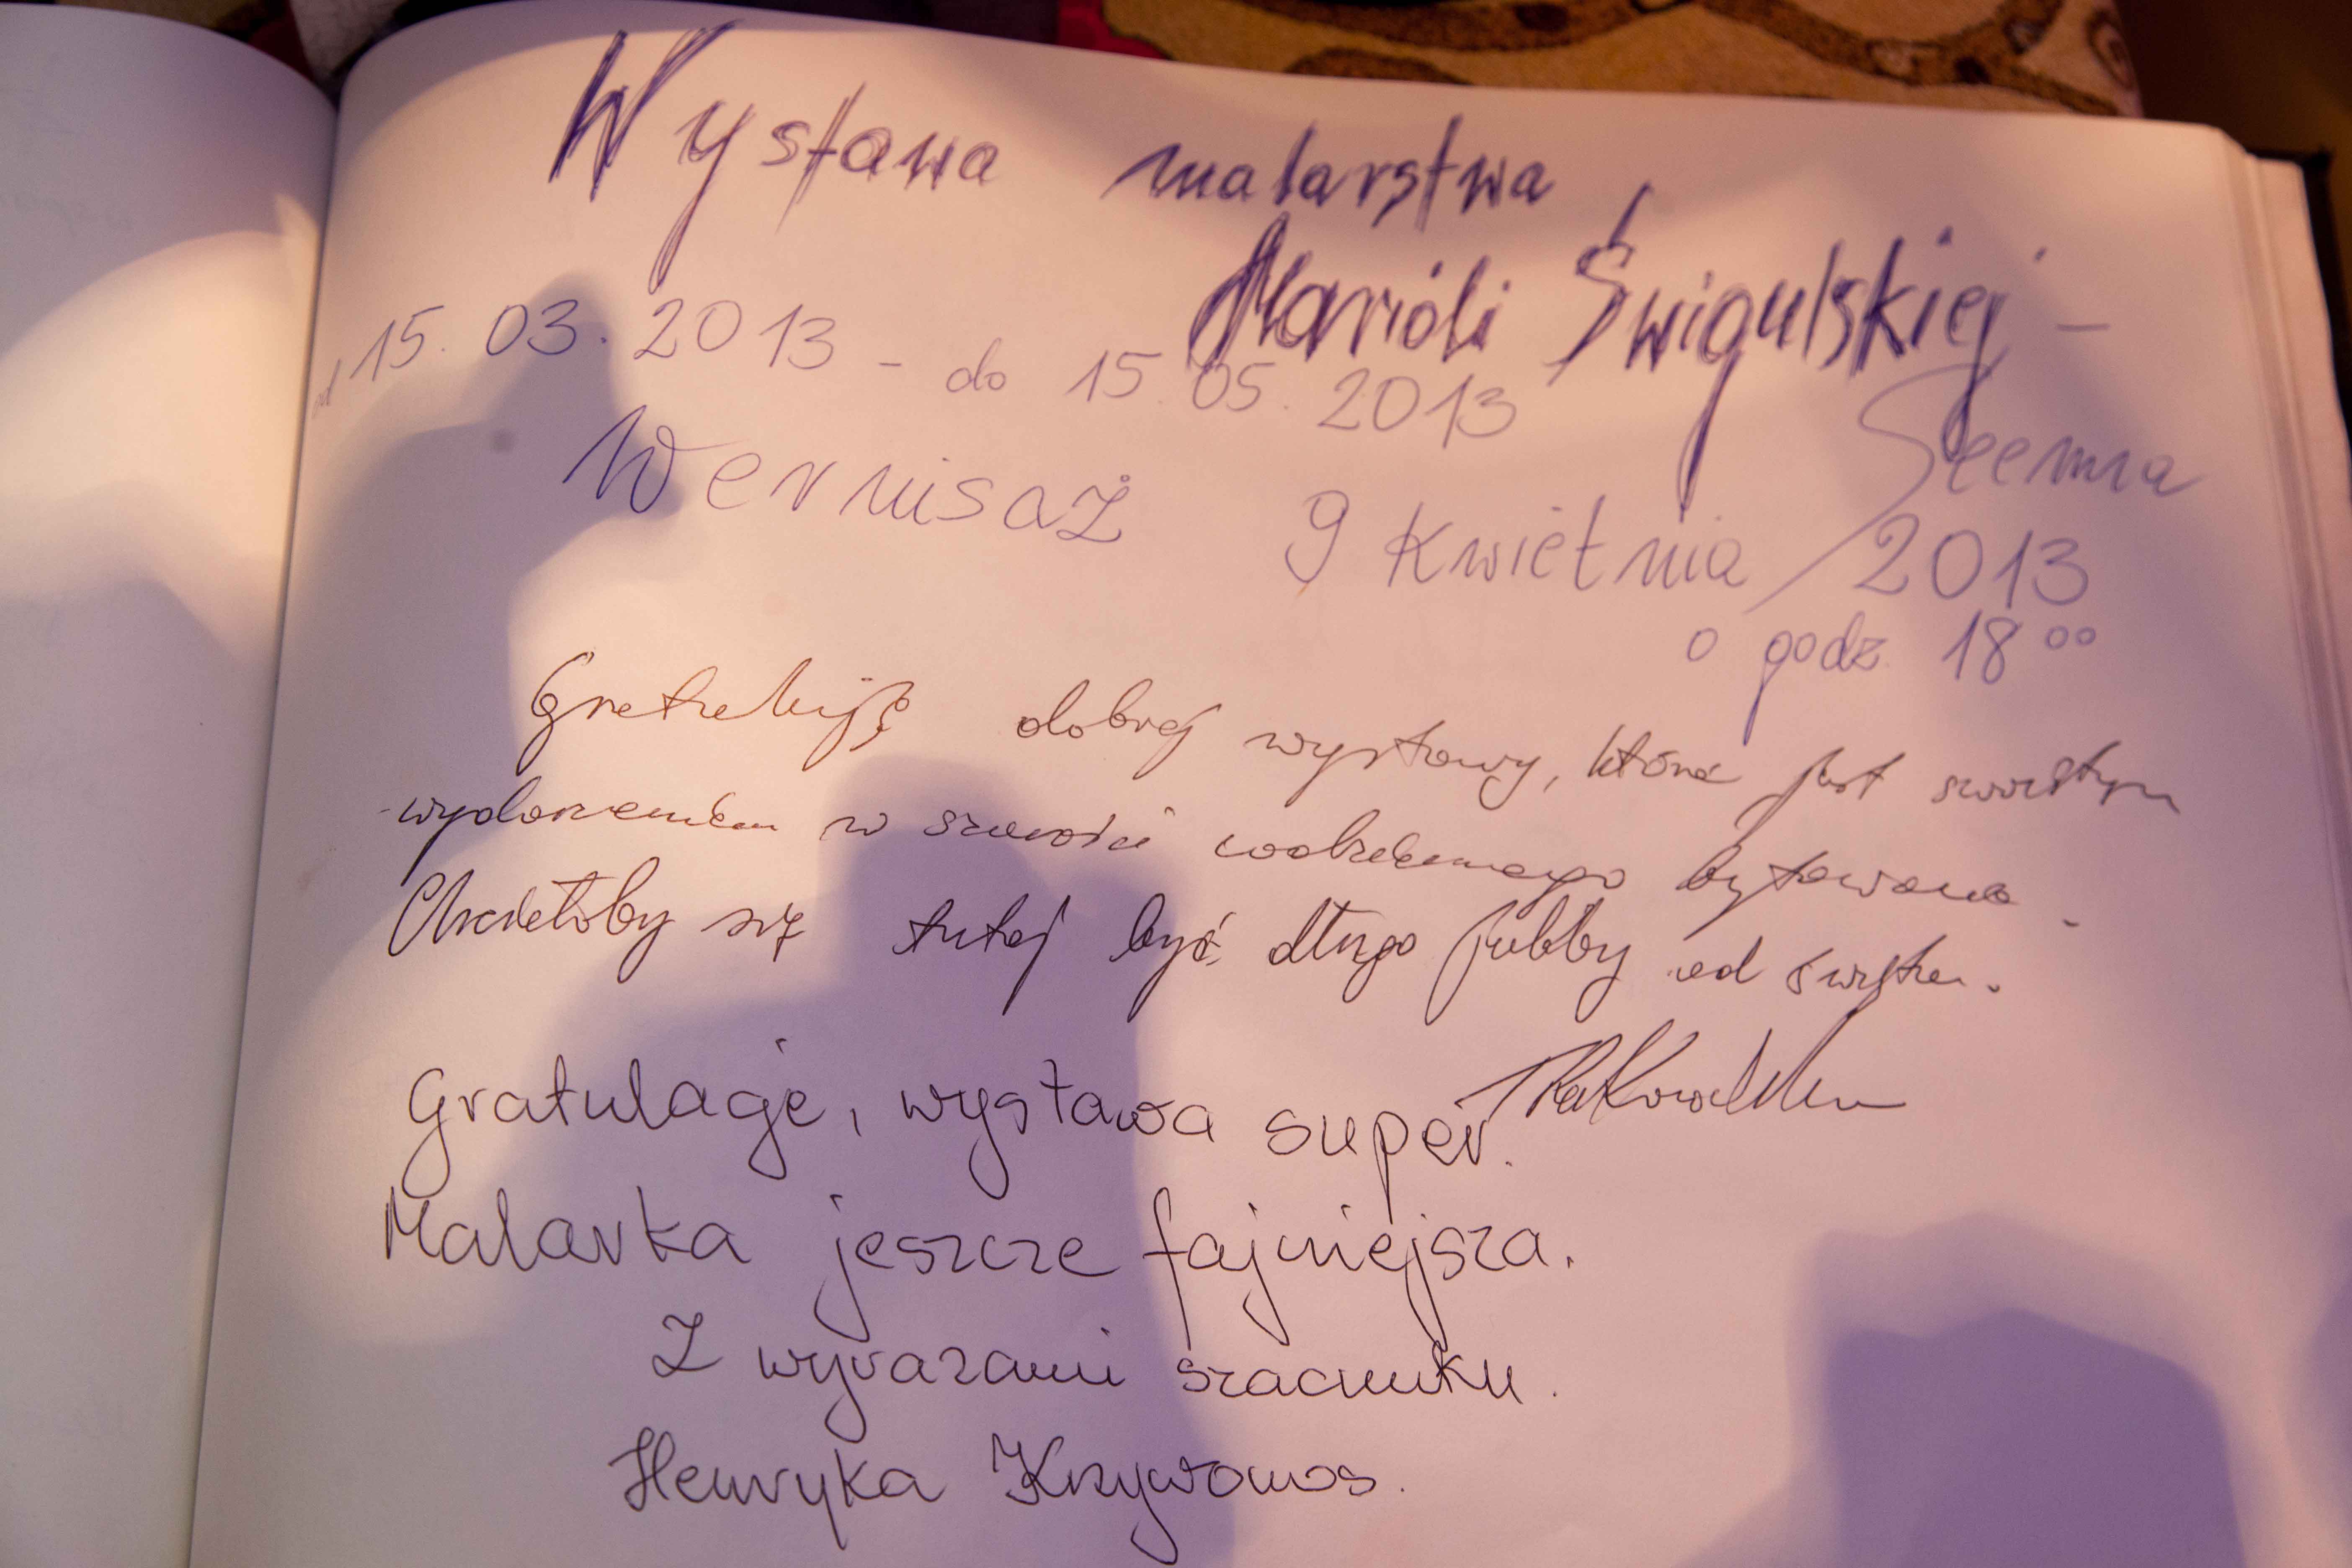 Wystawa malarstwa
Marioli Świgulskiej -
od 15. 03. 2013 - do 15. 05. 2013
Wernisaż 9 Kwietnia 2013
o godz. 18⁰⁰
Gratuluję dobrej wystawy, która jest swoistym
wydarzeniem w szarości codziennego bytowania.
Chciałoby się tutaj być długo jakby od święta.
Gratulacje, wystawa super.
Malarka jeszcze fajniejsza.
Z wyrazami szacunku.
Henryka Krzywonos.